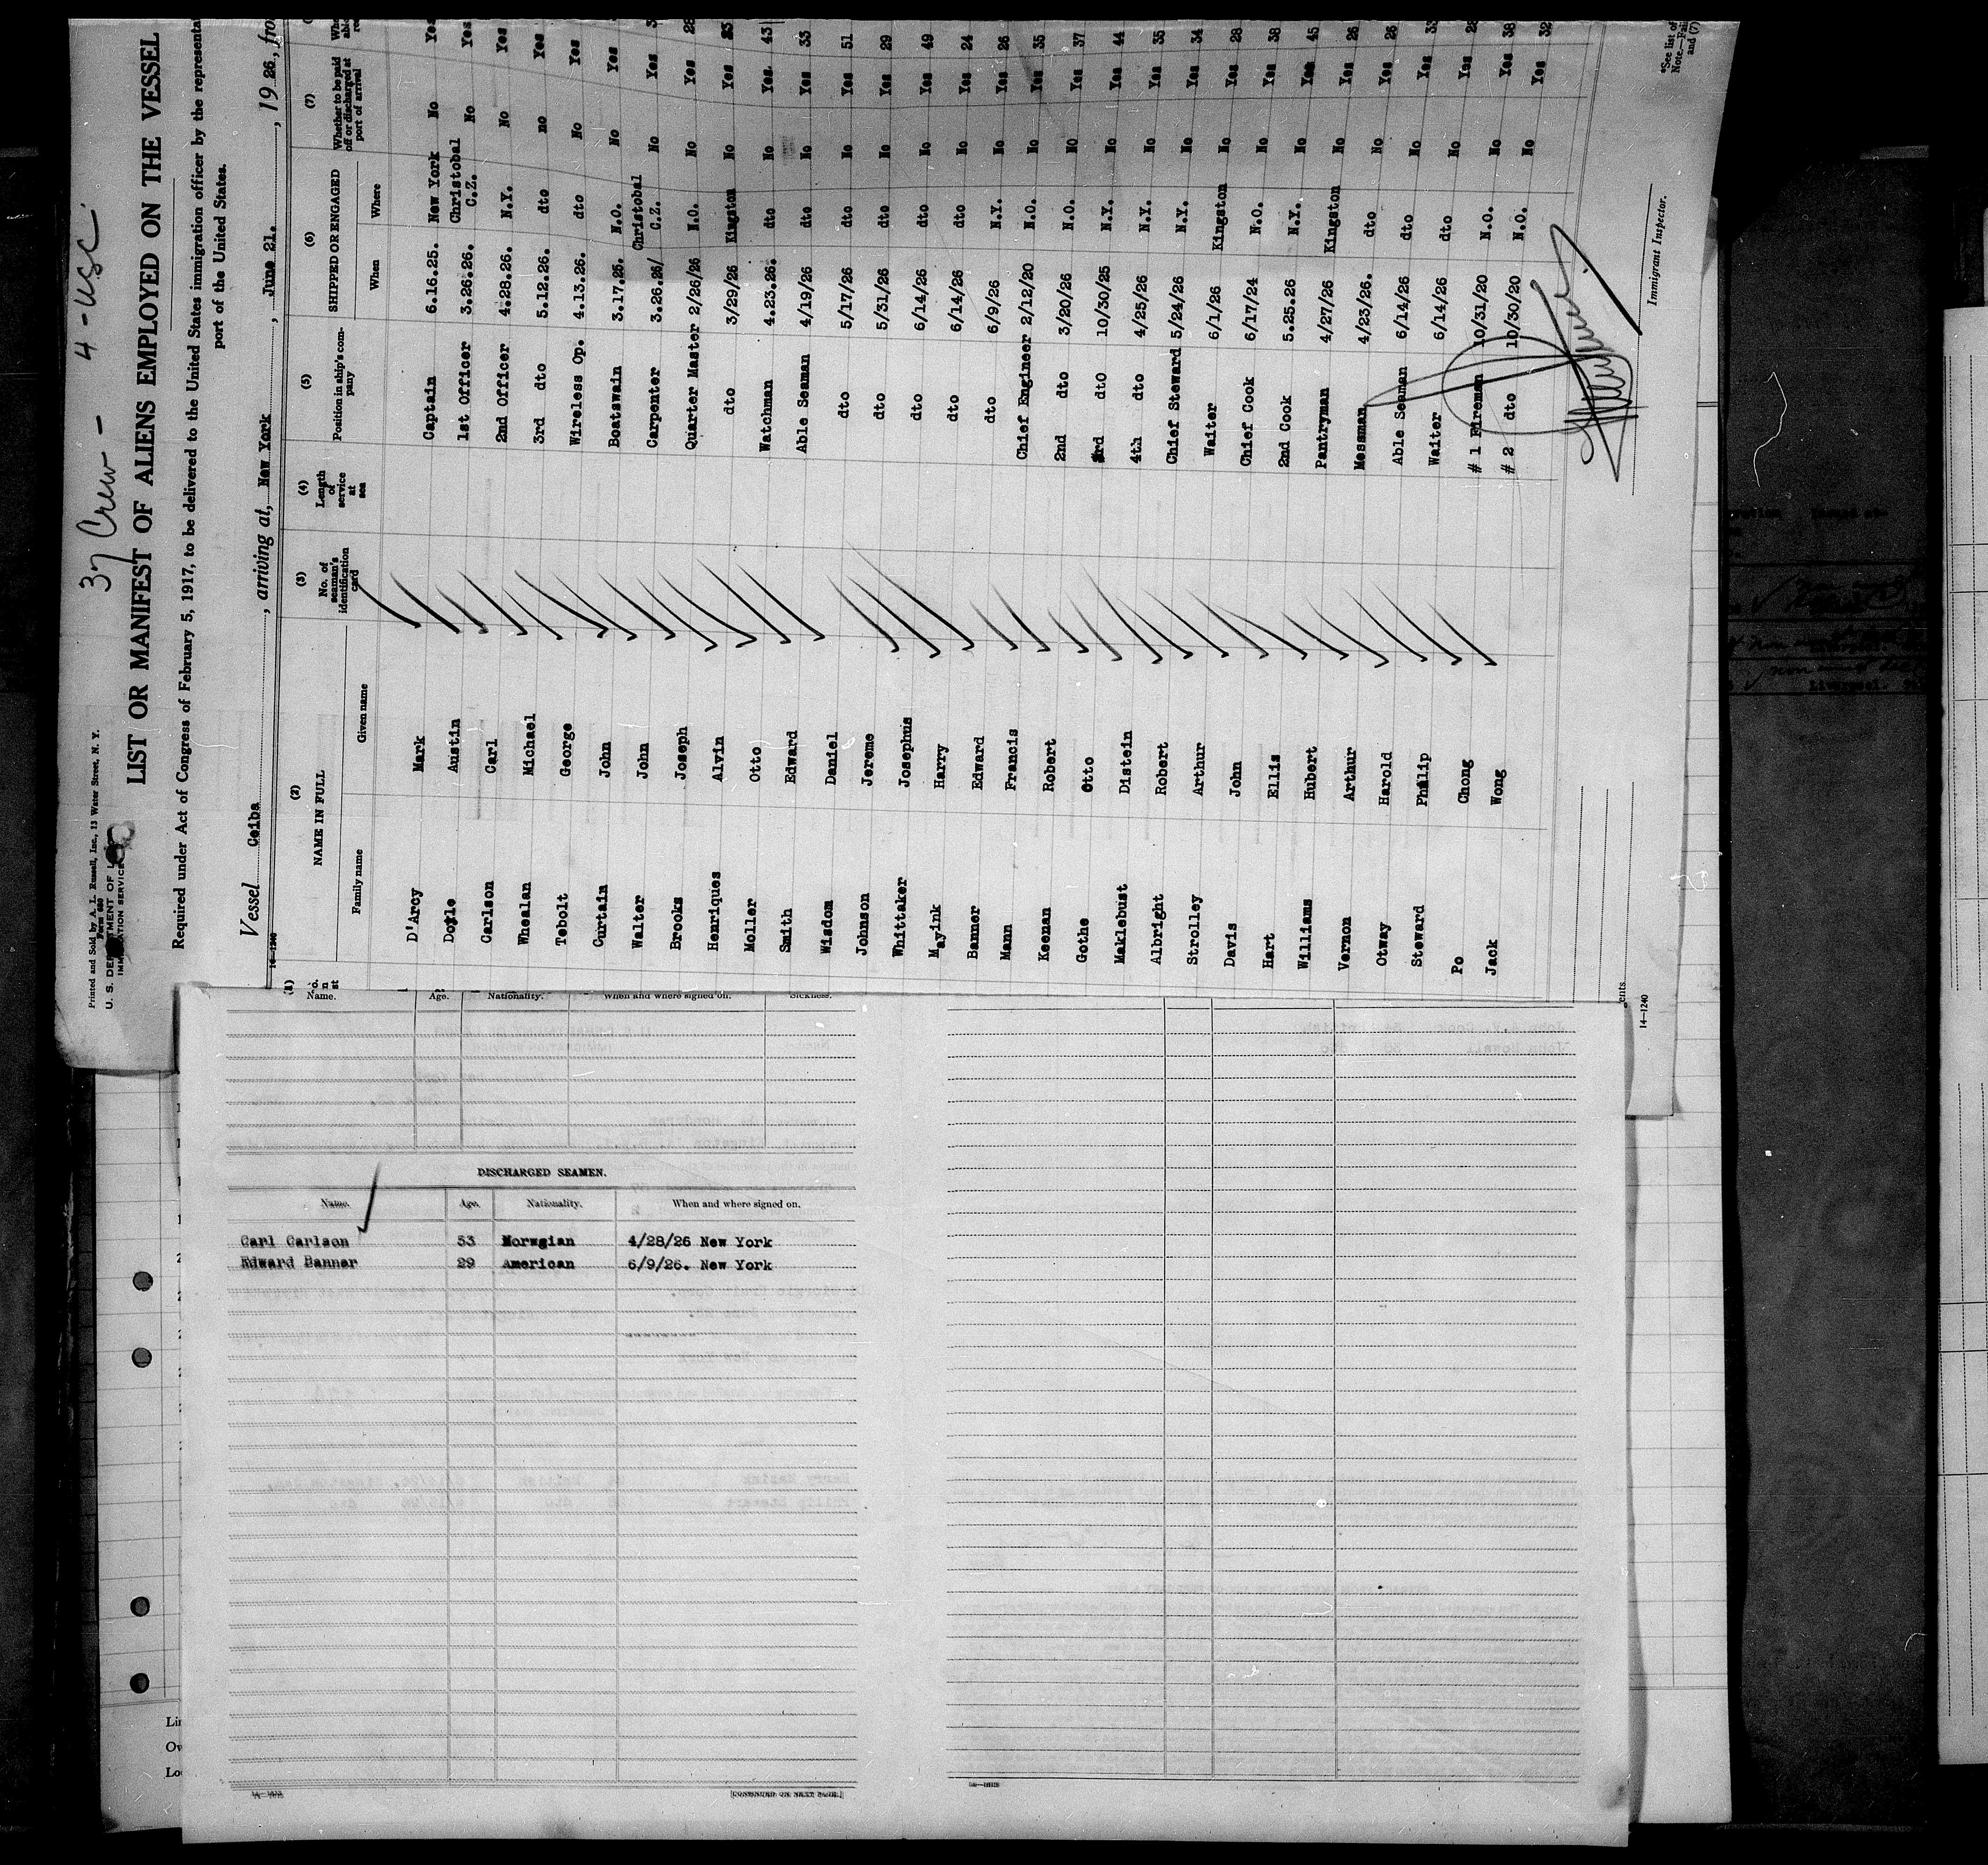 37 Crew - 4-USC.
Printed and Sold by A. L. Russell, Inc., 13 Water Street, N. Y.
Form 680
U. S. DEPARTMENT OF L
IMMIGRATION SERVICE
LIST OR MANIFEST OF ALIENS EMPLOYED ON THE VESSEL
Required under Act of Congress of February 5, 1917, to be delivered to the United States immigration officer by the representa
port of the United States.
Vessel Ceiba, arriving at, New York, June 21., 1926, fro
14-1240
(1) (2) (3) (4) (5) (6) (7)
NAME IN FULL No. of seaman's identification card Length of service at sea Position in ship's company SHIPPED OR ENGAGED Whether to be paid off or discharged at port of arrival
Family name Given name When Where
D'Arcy Mark Captain 6.16.25. New York No Yes
Doyle Austin 1st Officer 3.26.26. Christobal C.Z. No Yes
Carlson Carl 2nd Officer 4.28.26. N.Y. No Yes
Whealan Michael 3rd dto 5.12.26. dto no Yes
Tebolt George Wireless Op. 4.13.26. dto No Yes
Curtain John Boatswain 3.17.26. N.O. No Yes
Walter John Carpenter 3.26.26/ Christobal C.Z. No Yes
Brooks Joseph Quarter Master 2/26/26 N.O. No Yes 28
Henriques Alvin dto 3/29/26 Kingston No Yes 23
Moller Otto Watchman 4.23.26. dto No Yes. 43
Smith Edward Able Seaman 4/19/26 dto No Yes 33
Wisdom Daniel dto 5/17/26 dto No Yes 51
Johnson Jereme dto 5/31/26 dto No Yes 29
Whittaker Josephus dto 6/14/26 dto No Yes 49
Mayink Harry dto 6/14/26 dto No Yes 24
Banner Edward dto 6/9/26 N.Y. No Yes 26
Mann Francis Chief Engineer 2/12/20 N.O. No Yes 35
Keenan Robert 2nd dto 3/20/26 N.O. NO Yes 37
Gothe Otto 3rd dtO 10/30/25 N.Y. No Yes 44
Maklebust Distein 4th dto 4/25/26 N.Y. No Yes 35
Albright Robert Chief Steward 5/24/26 N.Y. No Yes 34
Strolley Arthur Waiter 6/1/26 Kingston No Yes 28
Davis John Chief Cook 6/17/24 N.O. No Yes 38
Hart Ellis 2nd Cook 5.25.26 N.Y. No Yes 45
Williams Hubert Pantryman 4/27/26 Kingston No Yes 26
Vernon Arthur Messman 4/23/26. dto No Yes 26
Otway Harold Able Seaman 6/14/26 dto No Yes 33
Steward Philip Waiter 6/14/26 dto No Yes 28
Po Chong # 1 Fireman 10/31/20 N.O. No Yes 38
Jack Wong # 2 dto 10/30/20 N.O. No Yes 32
Immigrant Inspector.
*See list of
Note.—Fai
and (7)
14—1240
Name. Age. Nationality. When and where signed on. Sickness.
DISCHARGED SEAMEN.
Name. Age. Nationality. When and where signed on.
Carl Carlson 53 Norwgian 4/28/26 New York
Edward Banner 29 American 6/9/26. New York
[CONTINUED ON NEXT PAGE.]